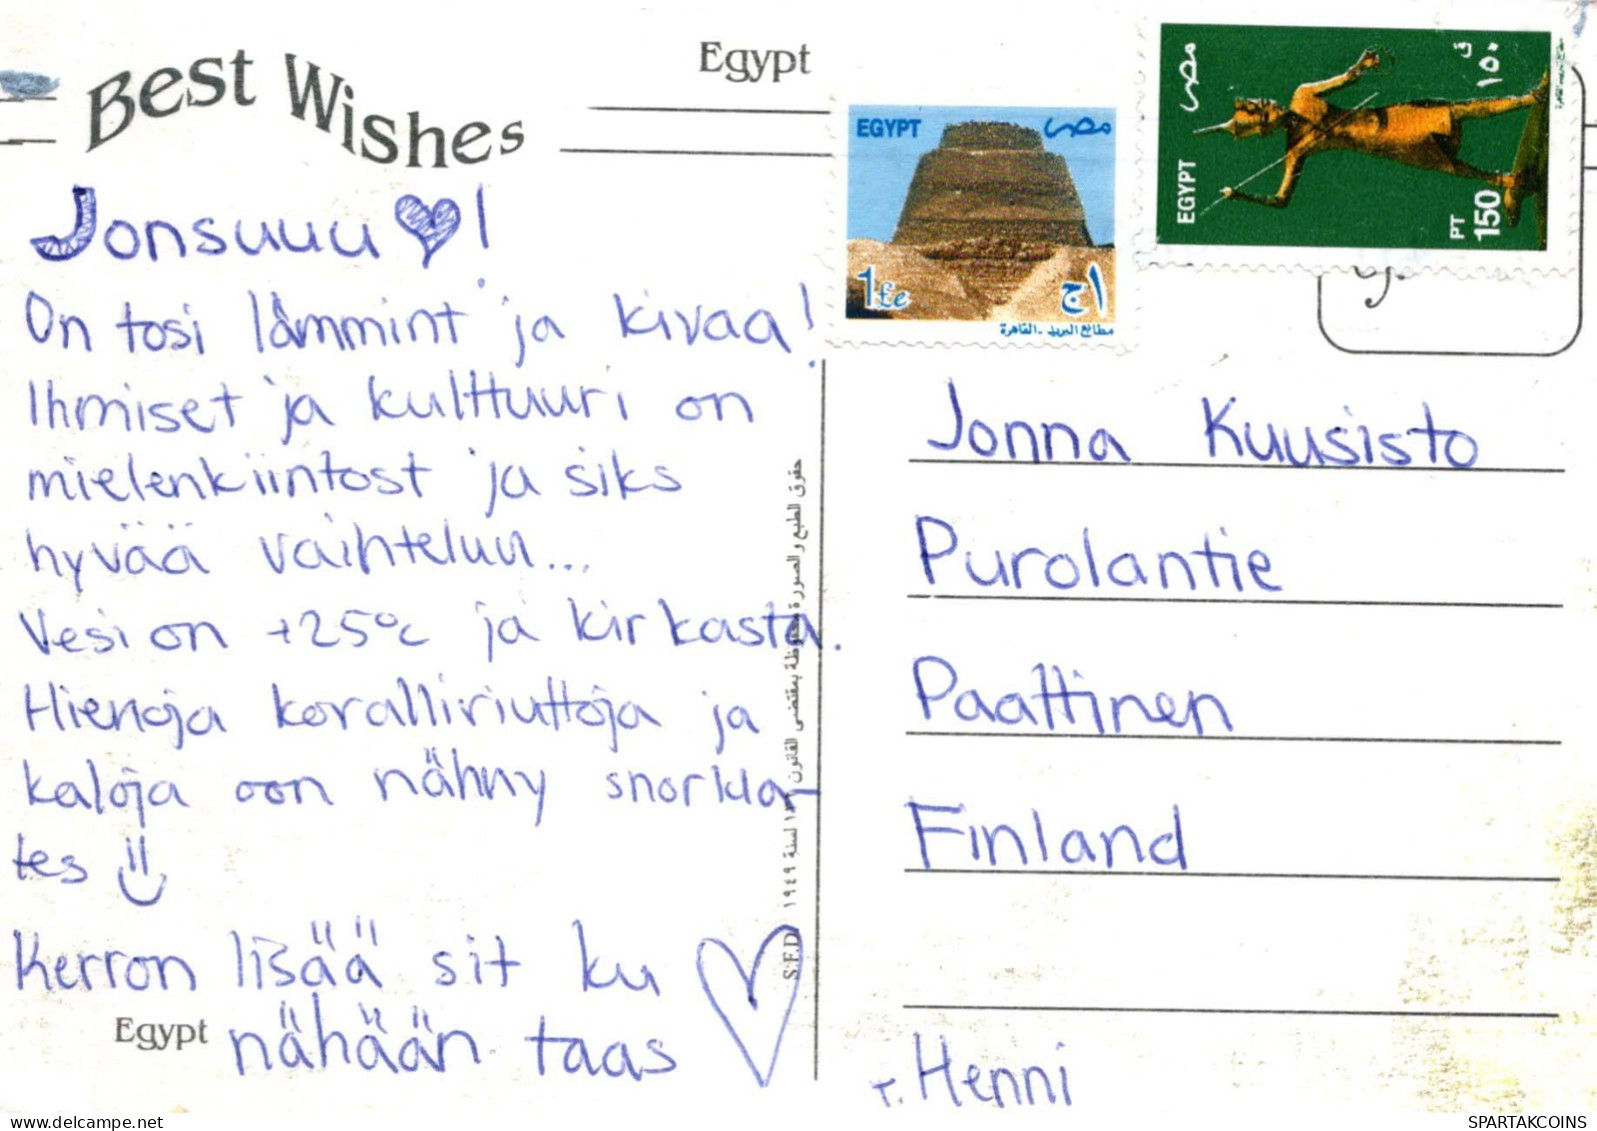 Best Wishes
Egypt
EGYPT مصر
1£e ١ج
مطابع البريد - القاهرة
EGYPT مصر
PT 150 ١٥٠ ق
Jonsuuu ♥!
On tosi lämmint ja kivaa!
Ihmiset ja kulttuuri on
mielenkiintost ja siks
hyvää vaihteluu...
Vesi on +25°c ja kirkasta.
Hienoja koralliriuttoja ja
kaloja oon nähny snorkla-
tes
Kerron lisää sit ku
nähään taas
Egypt
حقوق الطبع والصورة محفوظة بمقتضى القانون لسنة ١٩٤٩
S.F.D.
Jonna Kuusisto
Purolantie
Paattinen
Finland
T. Henni
SPARTAKCOINS